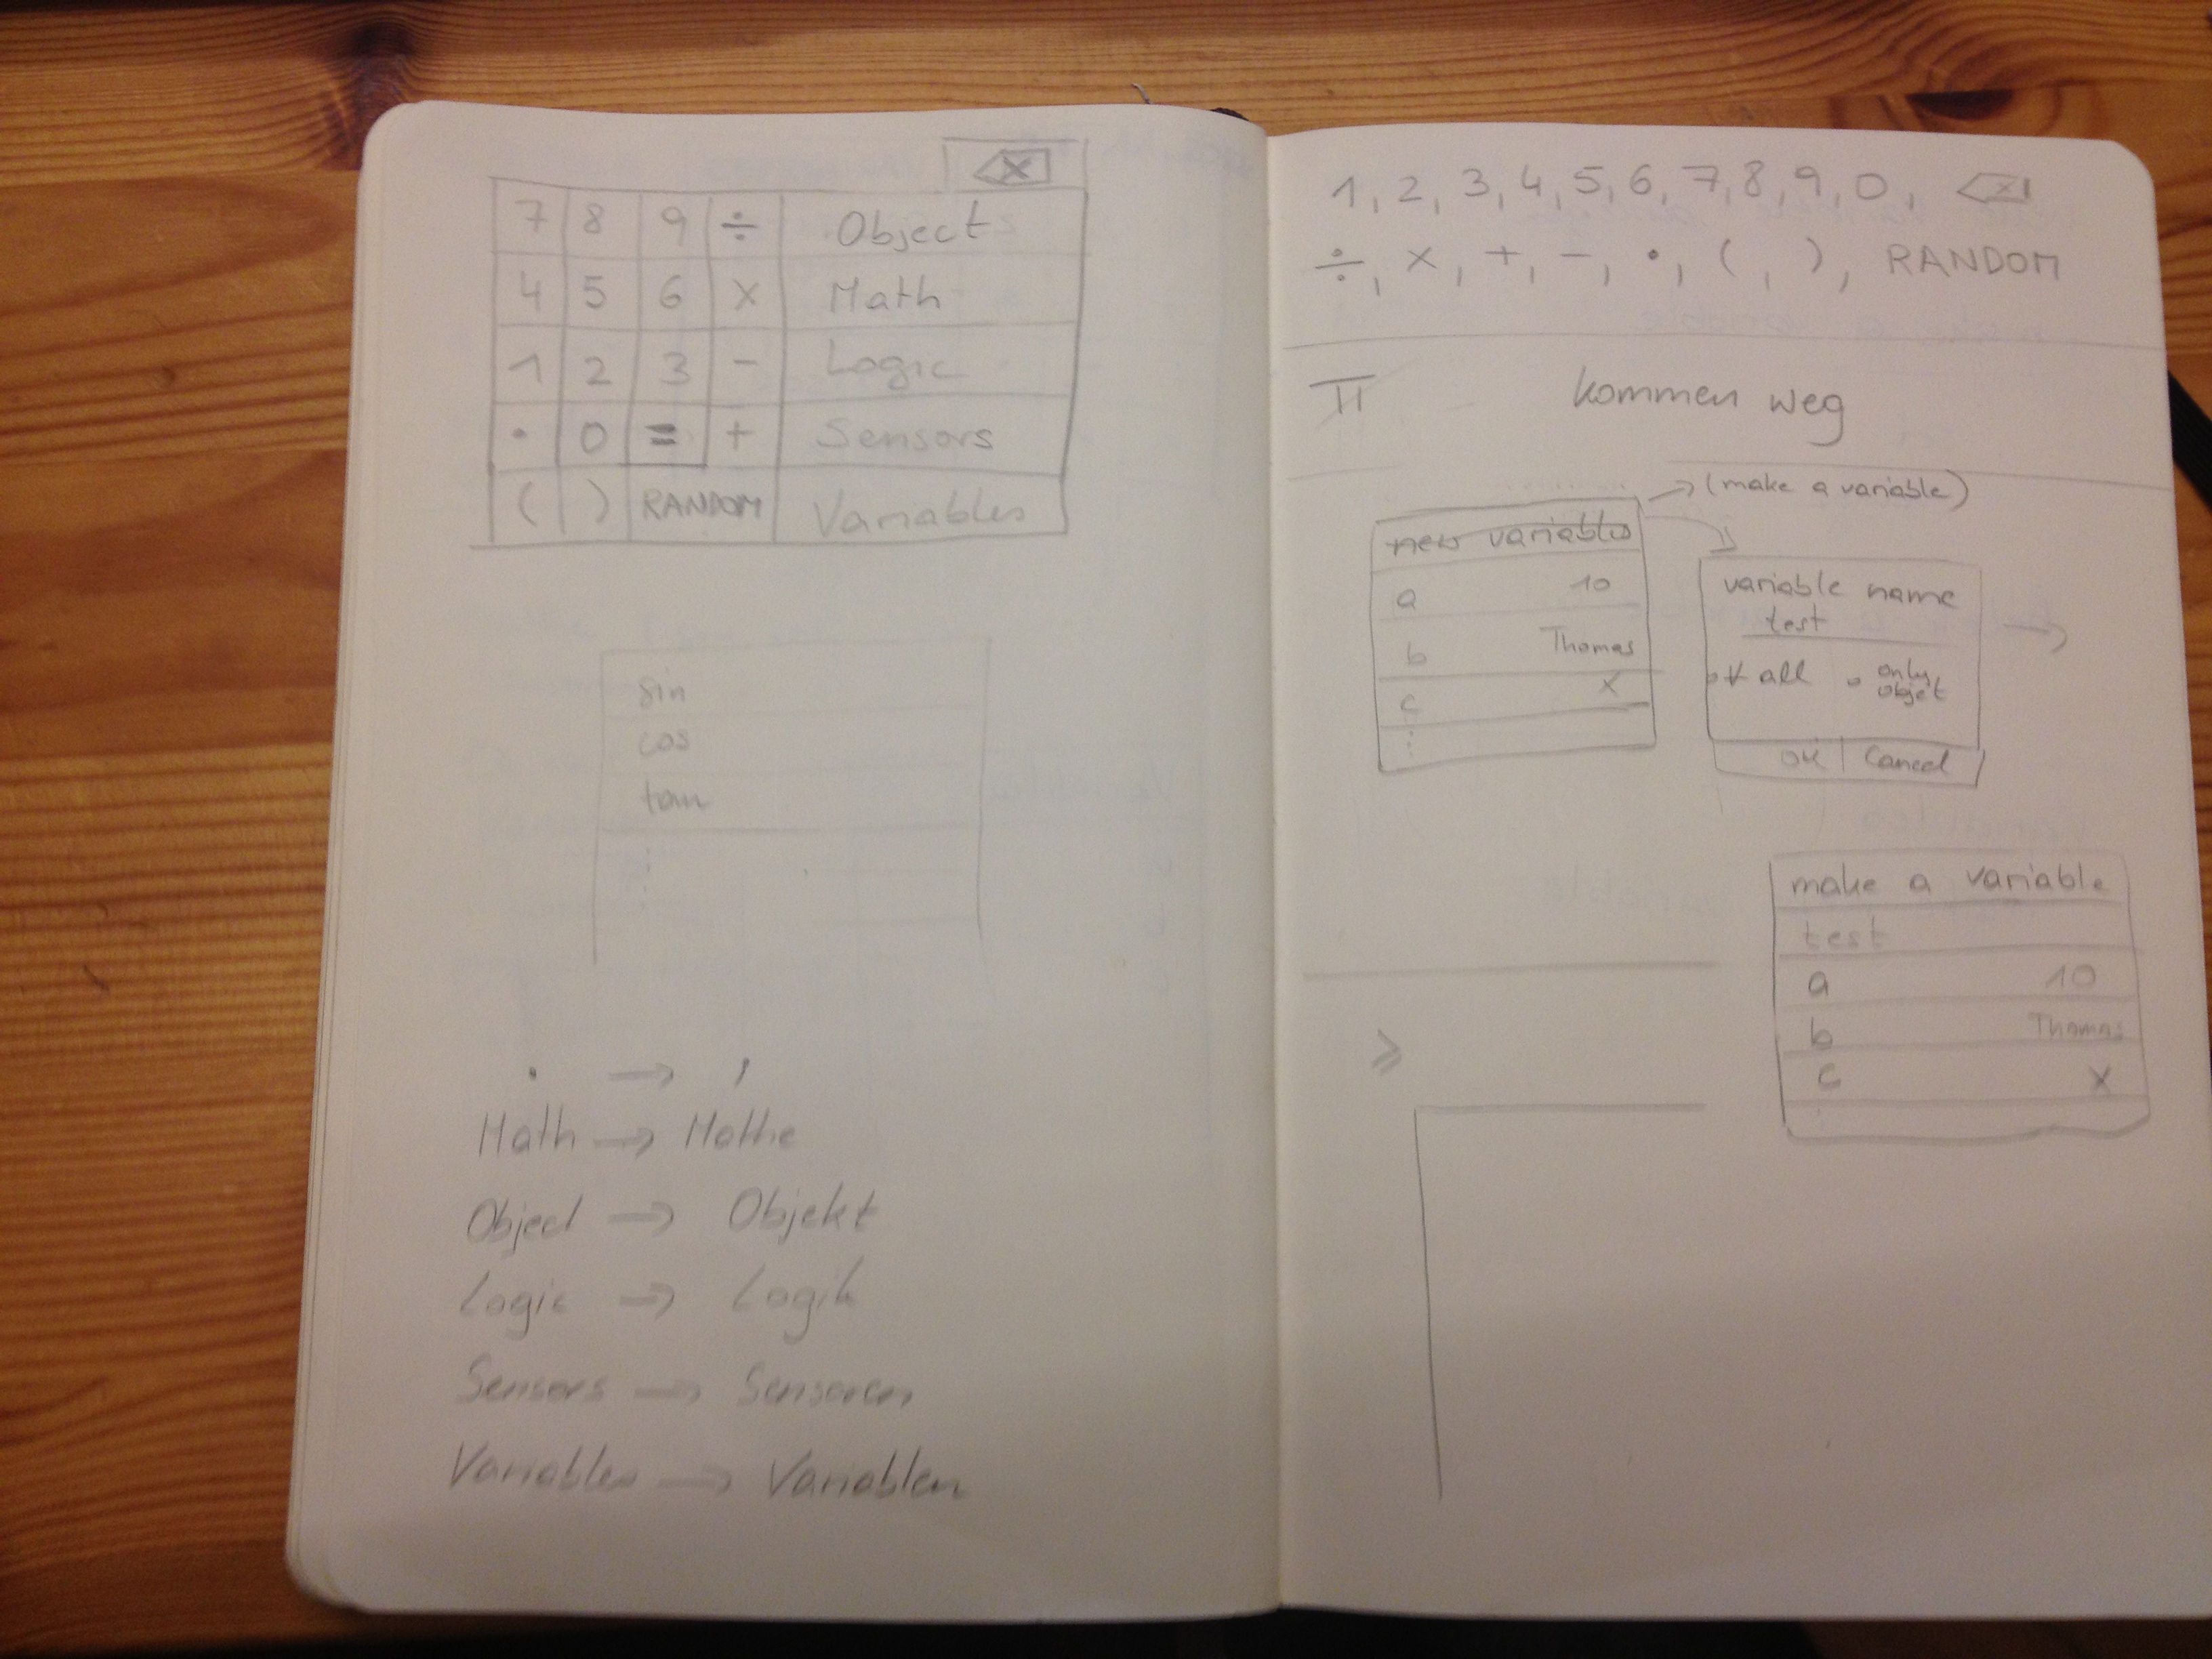 X
7 8 9 ÷ Objects
4 5 6 x Math
1 2 3 - Logic
. 0 = + Sensors
( ) RANDOM Variables
sin
cos
tan
. → ,
Math → Mathe
Object → Objekt
Logic → Logik
Sensors → Sensoren
Variables → Variablen
1, 2, 3, 4, 5, 6, 7, 8, 9, 0, X
÷, x, +, -, ., (, ), RANDOM
π kommen weg
→ (make a variable)
new variable
a 10
b Thomas
c x
⋮
variable name
test
all only
objet
OK | Cancel
→
make a variable
test
a 10
b Thomas
c x
⇒